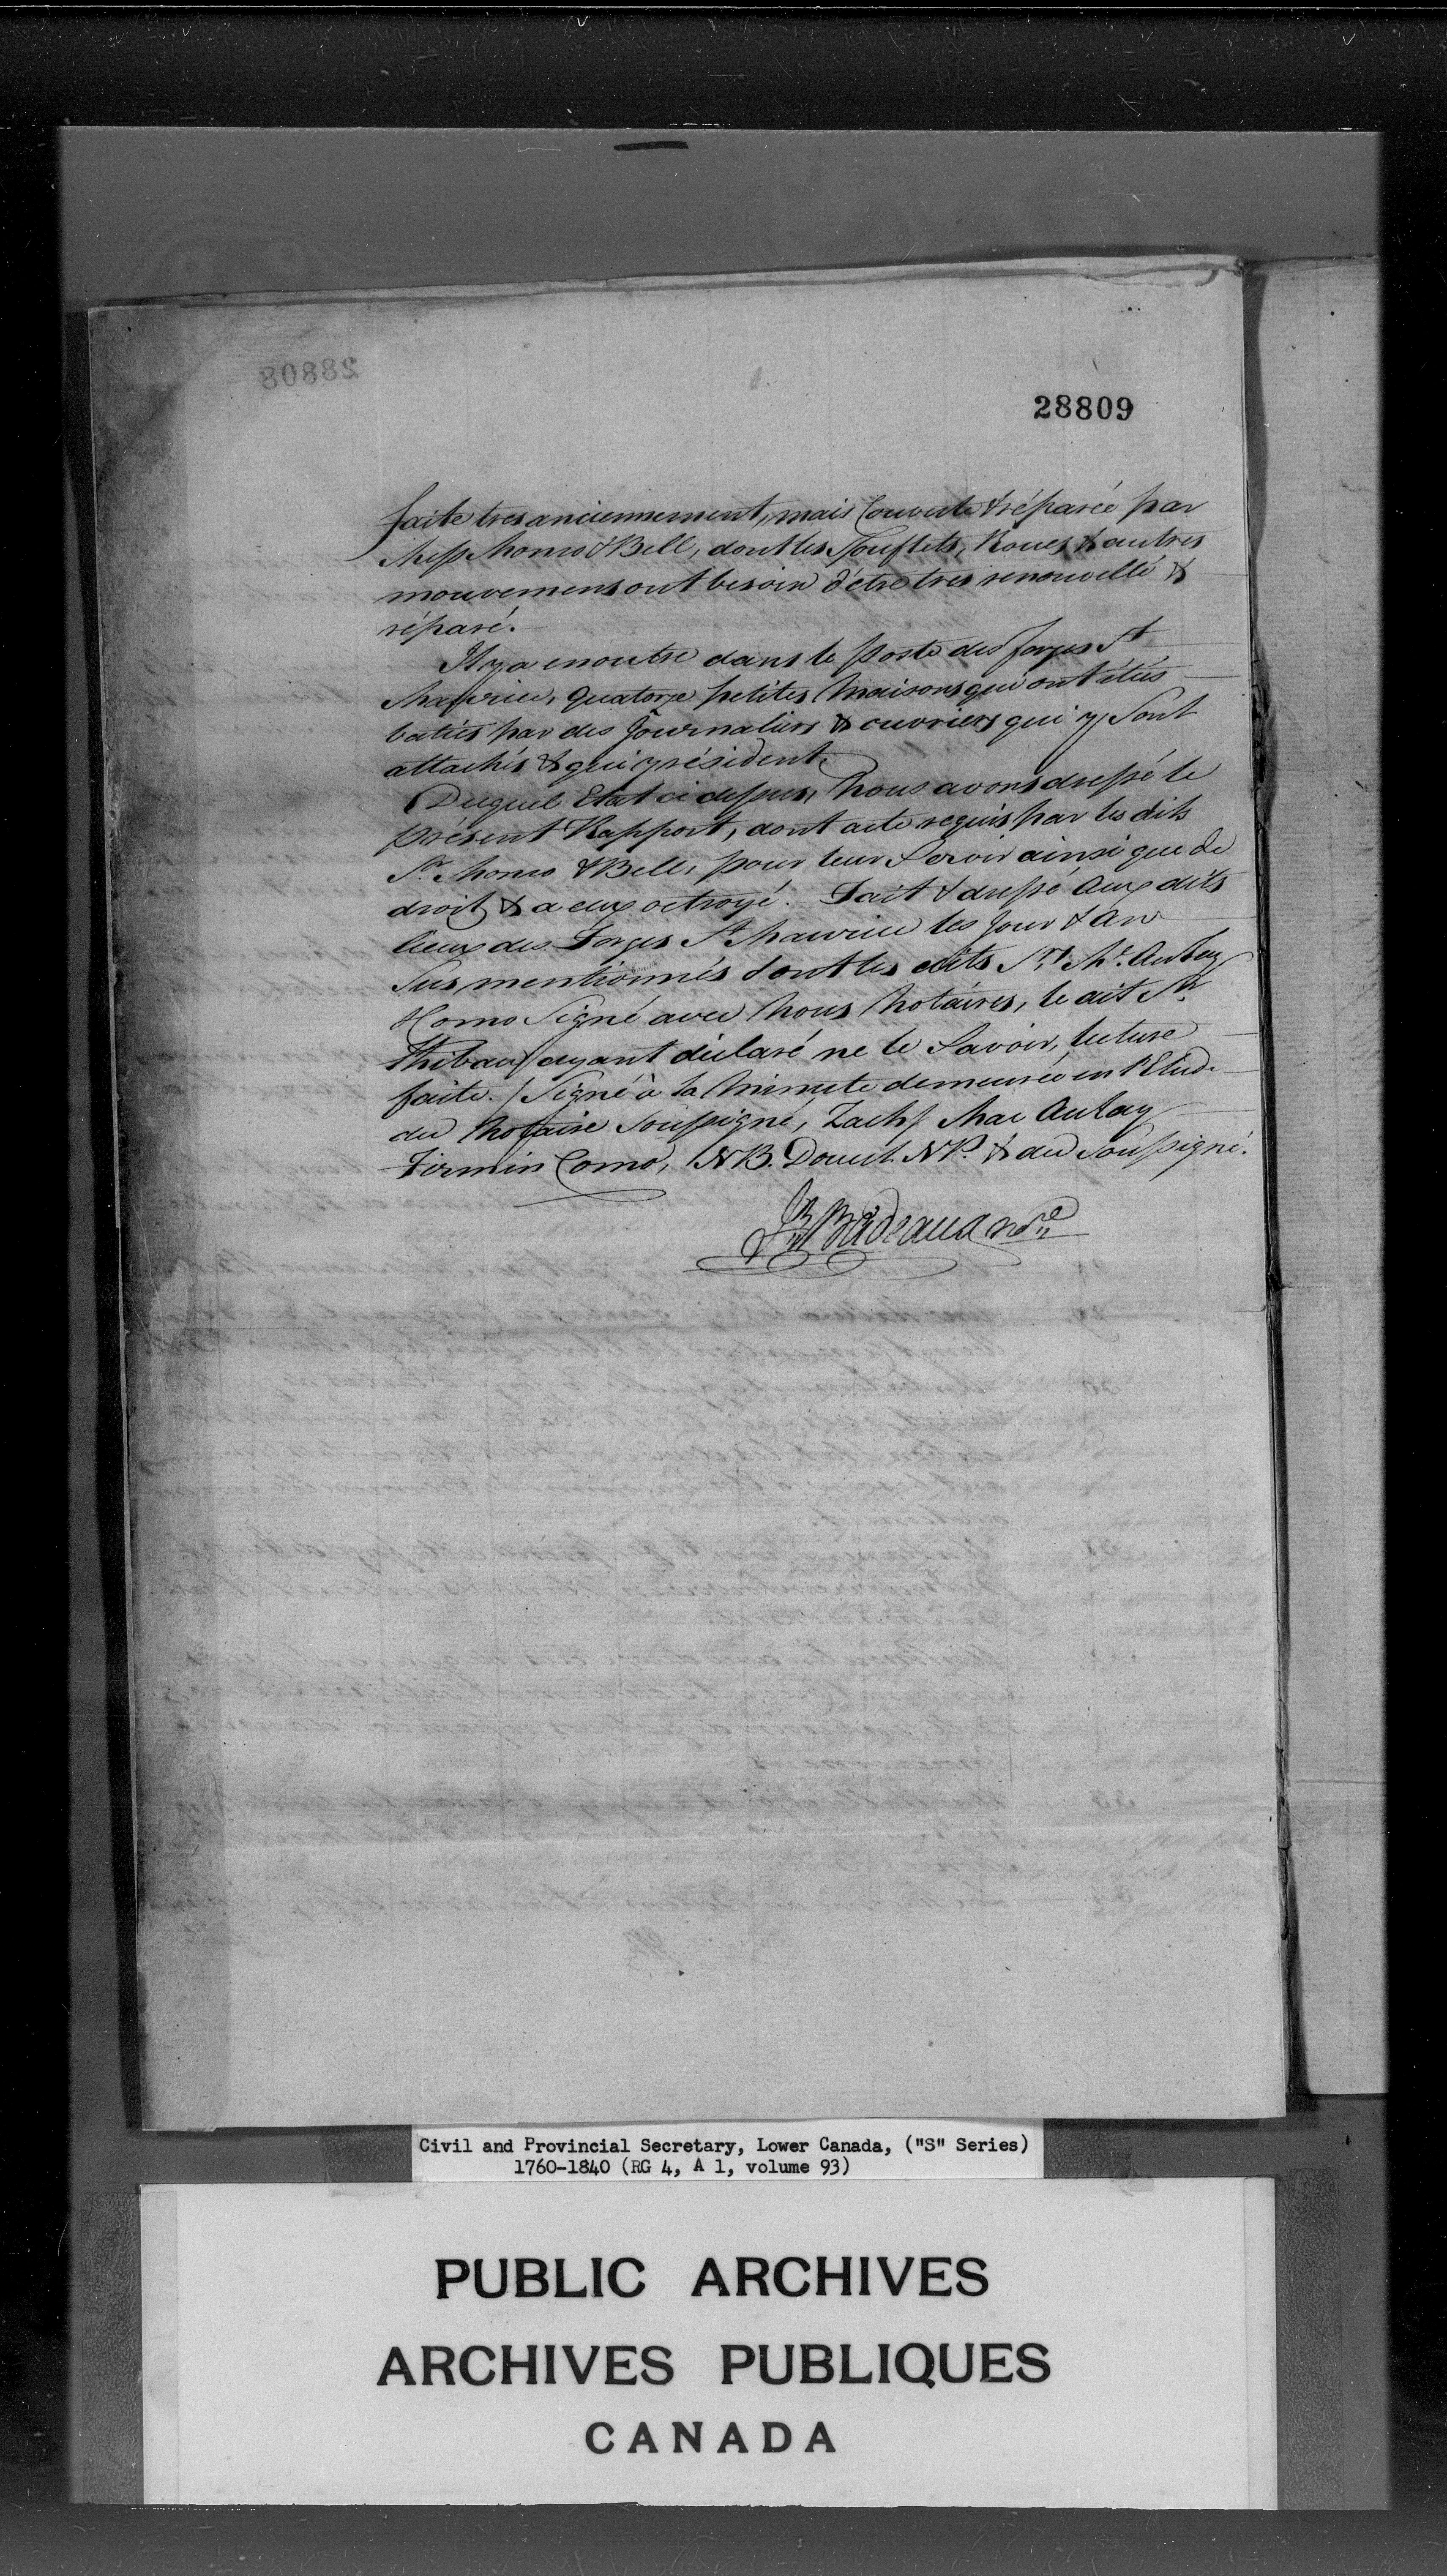 28808
28809
faite tres anciennement, mais Couverte & réparée par
Mess Monro & Bell, dont les Soufflets, Roues, & autres
mouvemens ont besoin d'être tres renouvellé &
réparé.
Il y a en outre dans le Poste des forges St
Maurice, quatorze petites Maisons qui ont étées
baties par des Journaliers & ouvriers qui y sont
attachés & qui y résident.
Duquel Etat ci dessus, Nous avons dressé le
présent Rapport, dont acte requis par les dits
Srs. Monro & Bell, pour leur Servir ainsi que de
droit, & a eux octroyé. Fait & dressé aux dits
lieux des Forges St Maurice les Jour & An
Sus mentionnés & ont les dits Srs. Mc. Aulay
Como Signé avec Nous Notaires, le dit Sr
Thibau ayant déclaré ne le Savoir, lecture
faite. / Signé à la Minute demeurée en l'Etude
du Notaire Soussigné, Zachy Mac Aulay
Firmin Como, N B. Doucet N P. & du Soussigné.
JB Badeaux Nore
Civil and Provincial Secretary, Lower Canada, ("S" Series)
1760-1840 (RG 4, A 1, volume 93)
PUBLIC ARCHIVES
ARCHIVES PUBLIQUES
CANADA